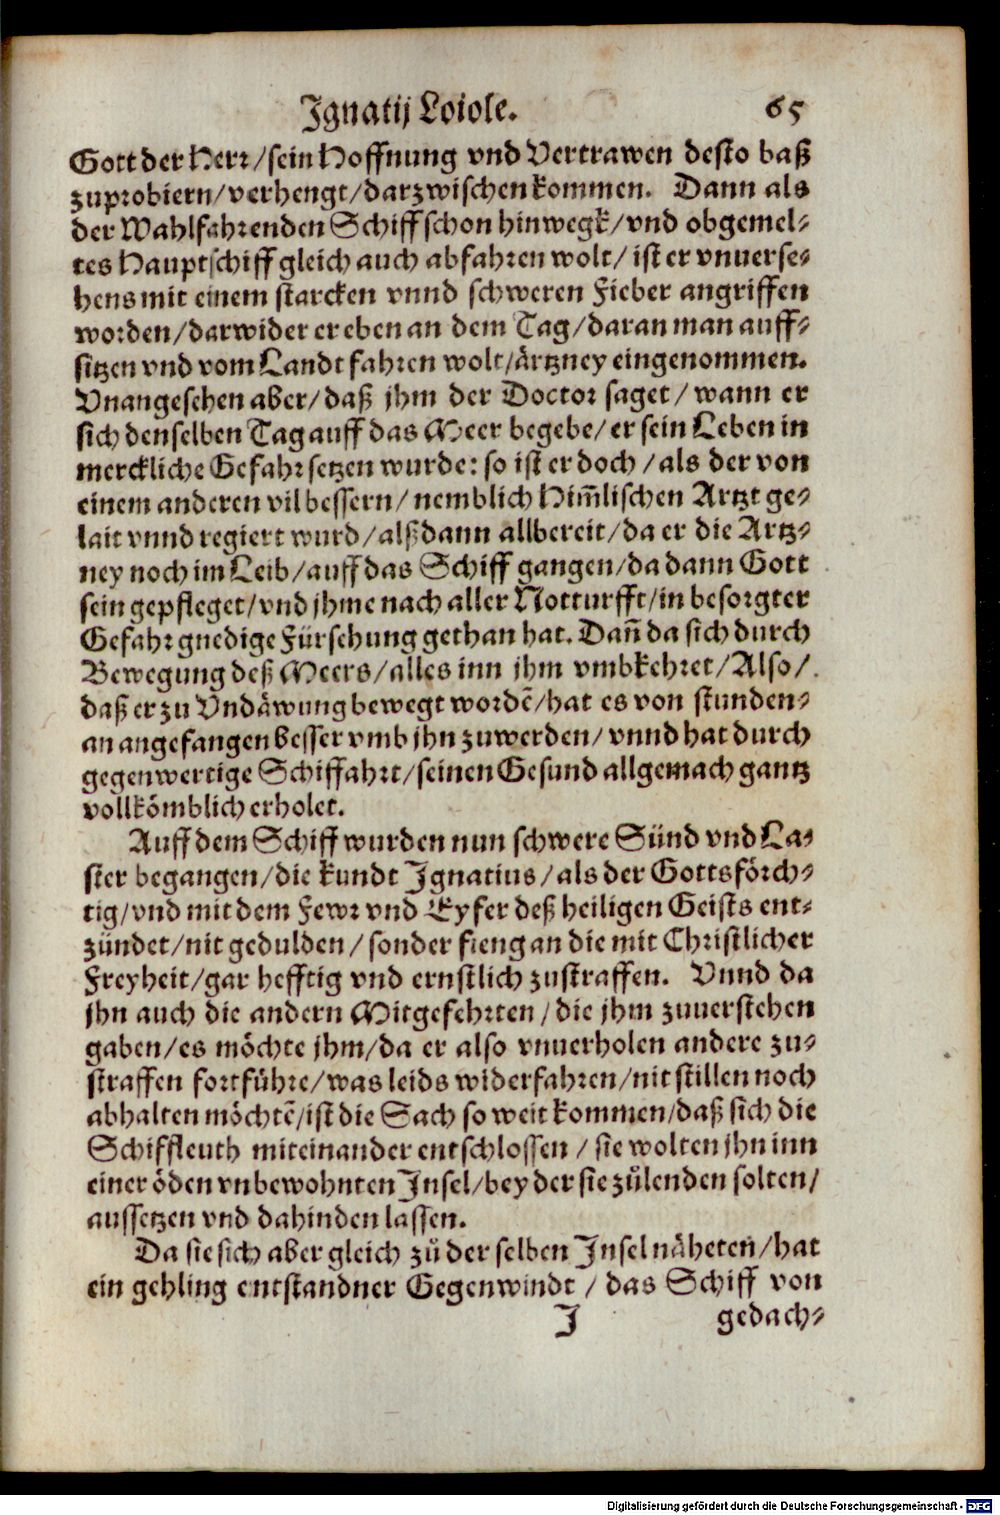 Ignatij Loiole. 65
Gott der Herr/sein Hoffnung vnd Vertrawen desto baß
zuprobiern/verhengt/darzwischen kommen. Dann als
der Wahlfahrenden Schiff schon hinwegk/vnd obgemel-
tes Hauptschiff gleich auch abfahren wolt/ ist er vnuerse-
hens mit einem starcken vnnd schweren Fieber angriffen
worden/darwider er eben an dem Tag/daran man auff-
sitzen vnd vom Landt fahren wolt/ärtzney eingenommen.
Vnangesehen aber/daß jhm der Doctor saget/ wann er
sich denselben Tag auff das Meer begebe/er sein Leben in
merckliche Gefahr setzen wurde: so ist er doch/als der von
einem anderen vil bessern/ nemblich Him̃lischen Artzt ge-
lait vnnd regiert wurd/alßdann allbereit/da er die Artz-
ney noch im Leib/auff das Schiff gangen/da dann Gott
sein gepfleget/vnd jhme nach aller Notturfft/in besorgter
Gefahr gnedige Fürsehung gethan hat. Dañ da sich durch
Bewegung deß Meers/alles inn jhm vmbkehret/Also/
daß er zu Vndäwung bewegt wordẽ/hat es von stunden-
an angefangen besser vmb jhn zuwerden/vnnd hat durch
gegenwertige Schiffahrt/seinen Gesund allgemach gantz
vollkömblich erholet.
Auff dem Schiff wurden nun schwere Sünd vnd La-
ster begangen/die kundt Ignatius/als der Gottsförch-
tig/vnd mit dem Fewr vnd Eyfer deß heiligen Geists ent-
zündet/nit gedulden/sonder fieng an die mit Christlicher
Freyheit/gar hefftig vnd ernstlich zustraffen. Vnnd da
jhn auch die andern Mitgefehrten/die jhm zuuerstehen
gaben/es möchte jhm/da er also vnuerholen andere zu-
straffen fortführe/was leids widerfahren/nit stillen noch
abhalten möchtẽ/ist die Sach so weit kommen/daß sich die
Schiffleuth miteinander entschlossen/sie wolten jhn inn
einer öden vnbewohnten Insel/bey der sie zůlenden solten/
aussetzen vnd dahinden lassen.
Da sie sich aber gleich zů der selben Insel näheten/hat
ein gehling entstandner Gegenwindt/das Schiff von
I gedach-
Digitalisierung gefördert durch die Deutsche Forschungsgemeinschaft - DFG